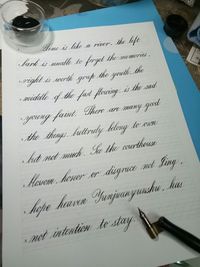 Time is like a river, the left
bank is unable to forget the memories,
right is worth grasp the youth, the
middle of the fast flowing, is the sad
young faint. There are many good
the things, buttruly belong to own
but not much. See the courthouse
blossom, honor or disgrace not Jing,
hope heaven Yunjuanyunshu, has
not intention to stay.